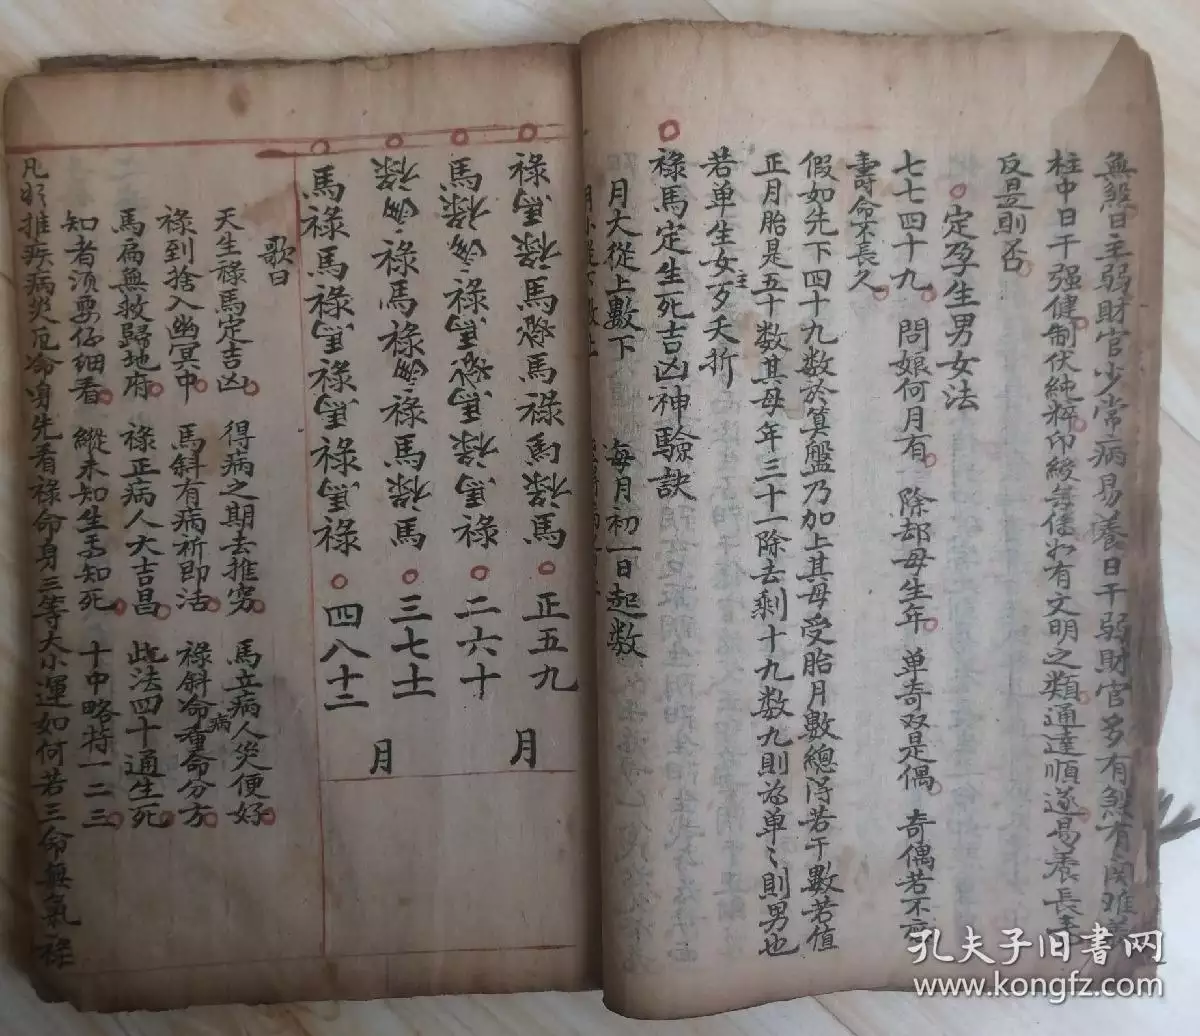 無煞日主弱財官少常病易養日干弱財官多有煞有関难養
柱中日干强健制伏純粹印綬每逢如有文明之類通達順遂易養長壽
反是則否
定孕生男女法
七七四十九 問娘何月有 除却母生年 单奇双是偶 奇偶若不應
壽命不長久
假如先下四十九数於算盤乃加上其母受胎月數總淂若干數若值
正月胎是五十数其母年三十一除去剩十九数九則為单〻則男也
若单生女主歹夭折
祿馬定生死吉凶神驗訣
月大從上數下 每月初一日起数
月小從下數上
祿馬祿馬祿馬祿馬祿馬 正五九
馬祿馬祿馬祿馬祿 二六十
祿馬祿馬祿馬祿馬 三七十一
馬祿馬祿馬祿馬祿馬祿 四八十二
月
月
歌曰
天生祿馬定吉凶 得病之期去推穷 馬立病人災便好
祿到捨入幽冥中 馬斜有病祈即活 祿斜病重命分方
馬扁無救歸地府 祿正病人大吉昌 此法四十通生死
知者须要仔细看 縱未知生焉知死 十中略持一二三
凡將推疾病災厄命身先看祿命身三等大小運如何若三命無氣祿
孔夫子旧書网
www.kongfz.com